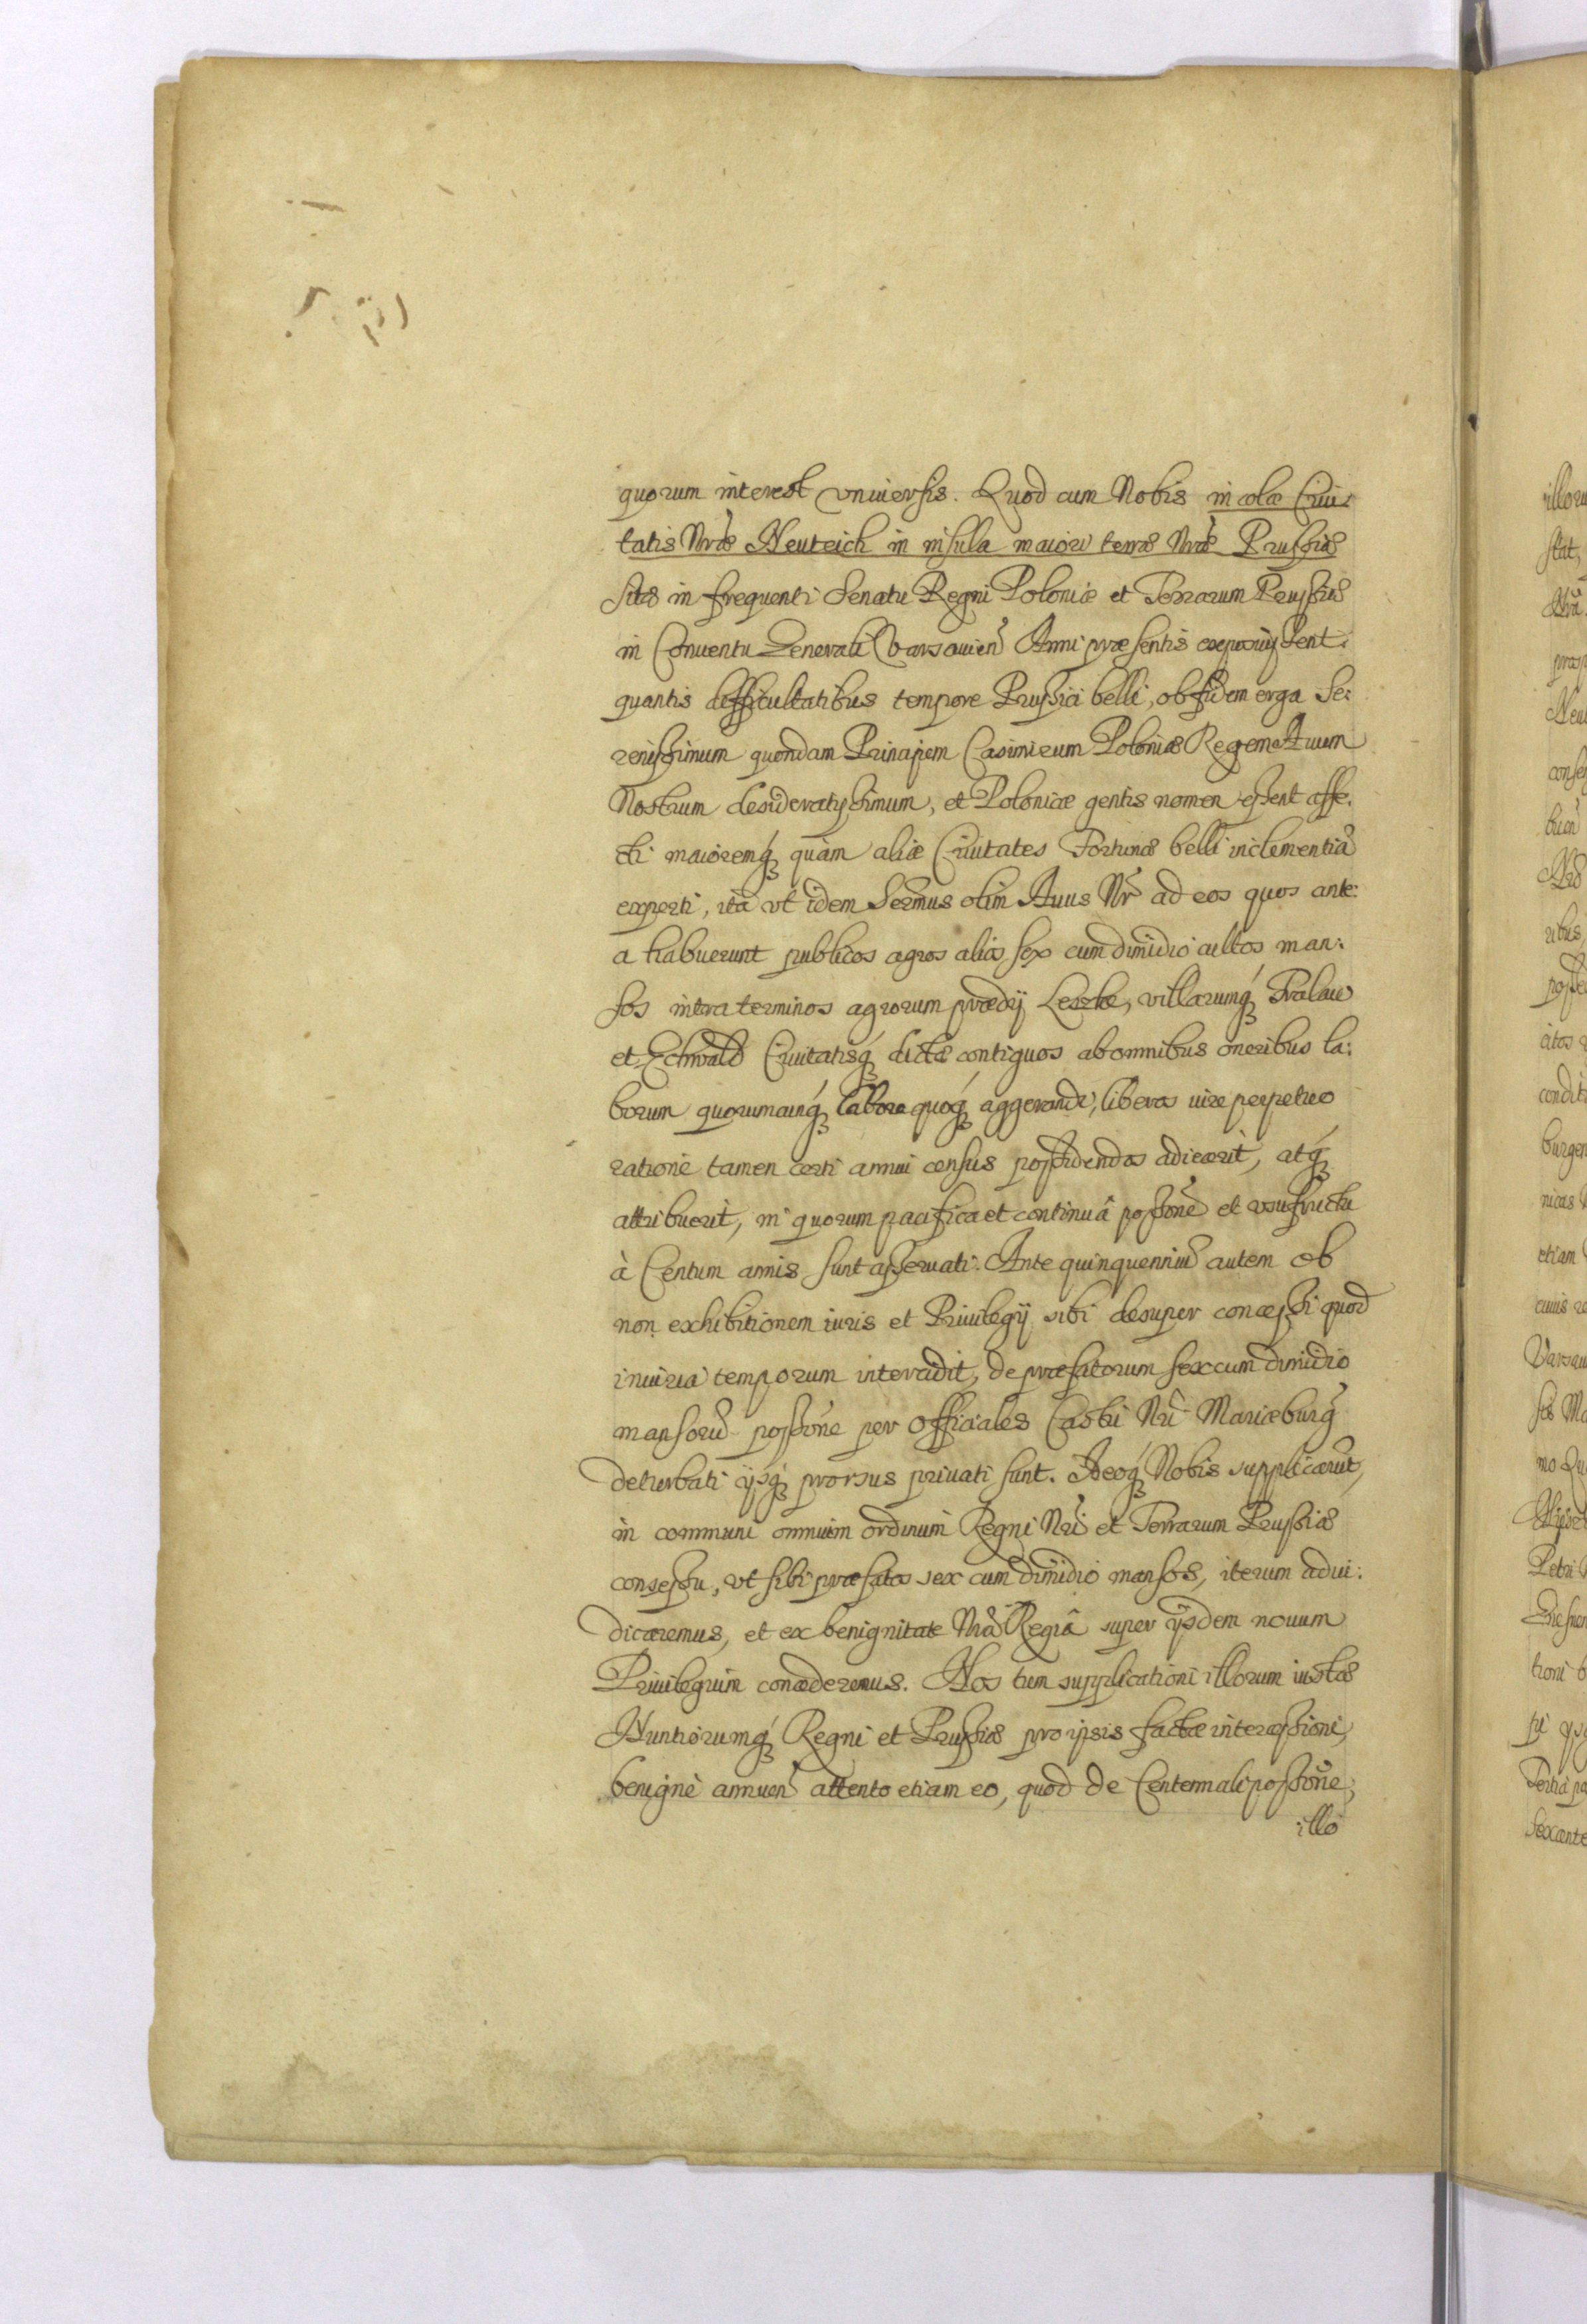 quorum interest vniuersis. Quod cum Nobis incolæ Ciui:
tatis Nræ Neuteich in insula maiori terræ Nræ Prussiæ
sitæ in frequenti Senatu Regni Poloniæ et Terrarum Prussiæ
in Conuentu Generali Varsauien̄ Anni præsentis exposuissent.
quantis difficultatibus tempore Prussici belli, ob fidem erga Se:
renissimum quondam Principem Casimirum Poloniæ Regem Auum
Nostrum desideratissimum, et Polonicæ gentis nomen essent affe.
cti maioremq́ quàm aliæ Ciuitates Fortunæ belli inclementiā
experti, ità vt idem Sermus olim Auus Nr̄ ad eos quos ante:
a habuerunt publicos agros alios sex cum dimidio cultos man:
sos intra terminos agrorum prædij Leszke, villarumq́ Tralaw
et Echwald Ciuitatisq́ dictæ contiguos ab omnibus oneribus la:
borum quorumcunq́ labore quoq́ aggerandi, liberos iure perpetuo
ratione tamen certi annui census possidendos adiecerit, atq́
attribuerit, in quorum pacifica et continuâ possōne et vsufructu
à Centum annis sunt asseruati. Ante quinquenniū autem ob
non exhibitionem iuris et Priuilegij sibi desuper concessi quod
iniuria temporum intercidit, de præfatorum sex cum dimidio
mansorū possōne per Officiales Castri Nrī Mariæburḡ
deturbati ijsq́ prorsus priuati sunt. Ideoq́ Nobis supplicarūt,
in communi omnium ordinum Regni Nrī et Terrarum Prussiæ
consessu, vt sibi præfatos sex cum dimidio mansos, iterum adiu:
dicaremus, et ex benignitate Nrâ Regiâ super ijsdem nouum
Priuilegium concederemus. Nos tum supplicationi illorum iustæ
Nuntiorumq́ Regni et Prussiæ pro ipsis factæ intercessioni,
benignè annuen̄ attento etiam eo, quod de Centennali possōne,
illo